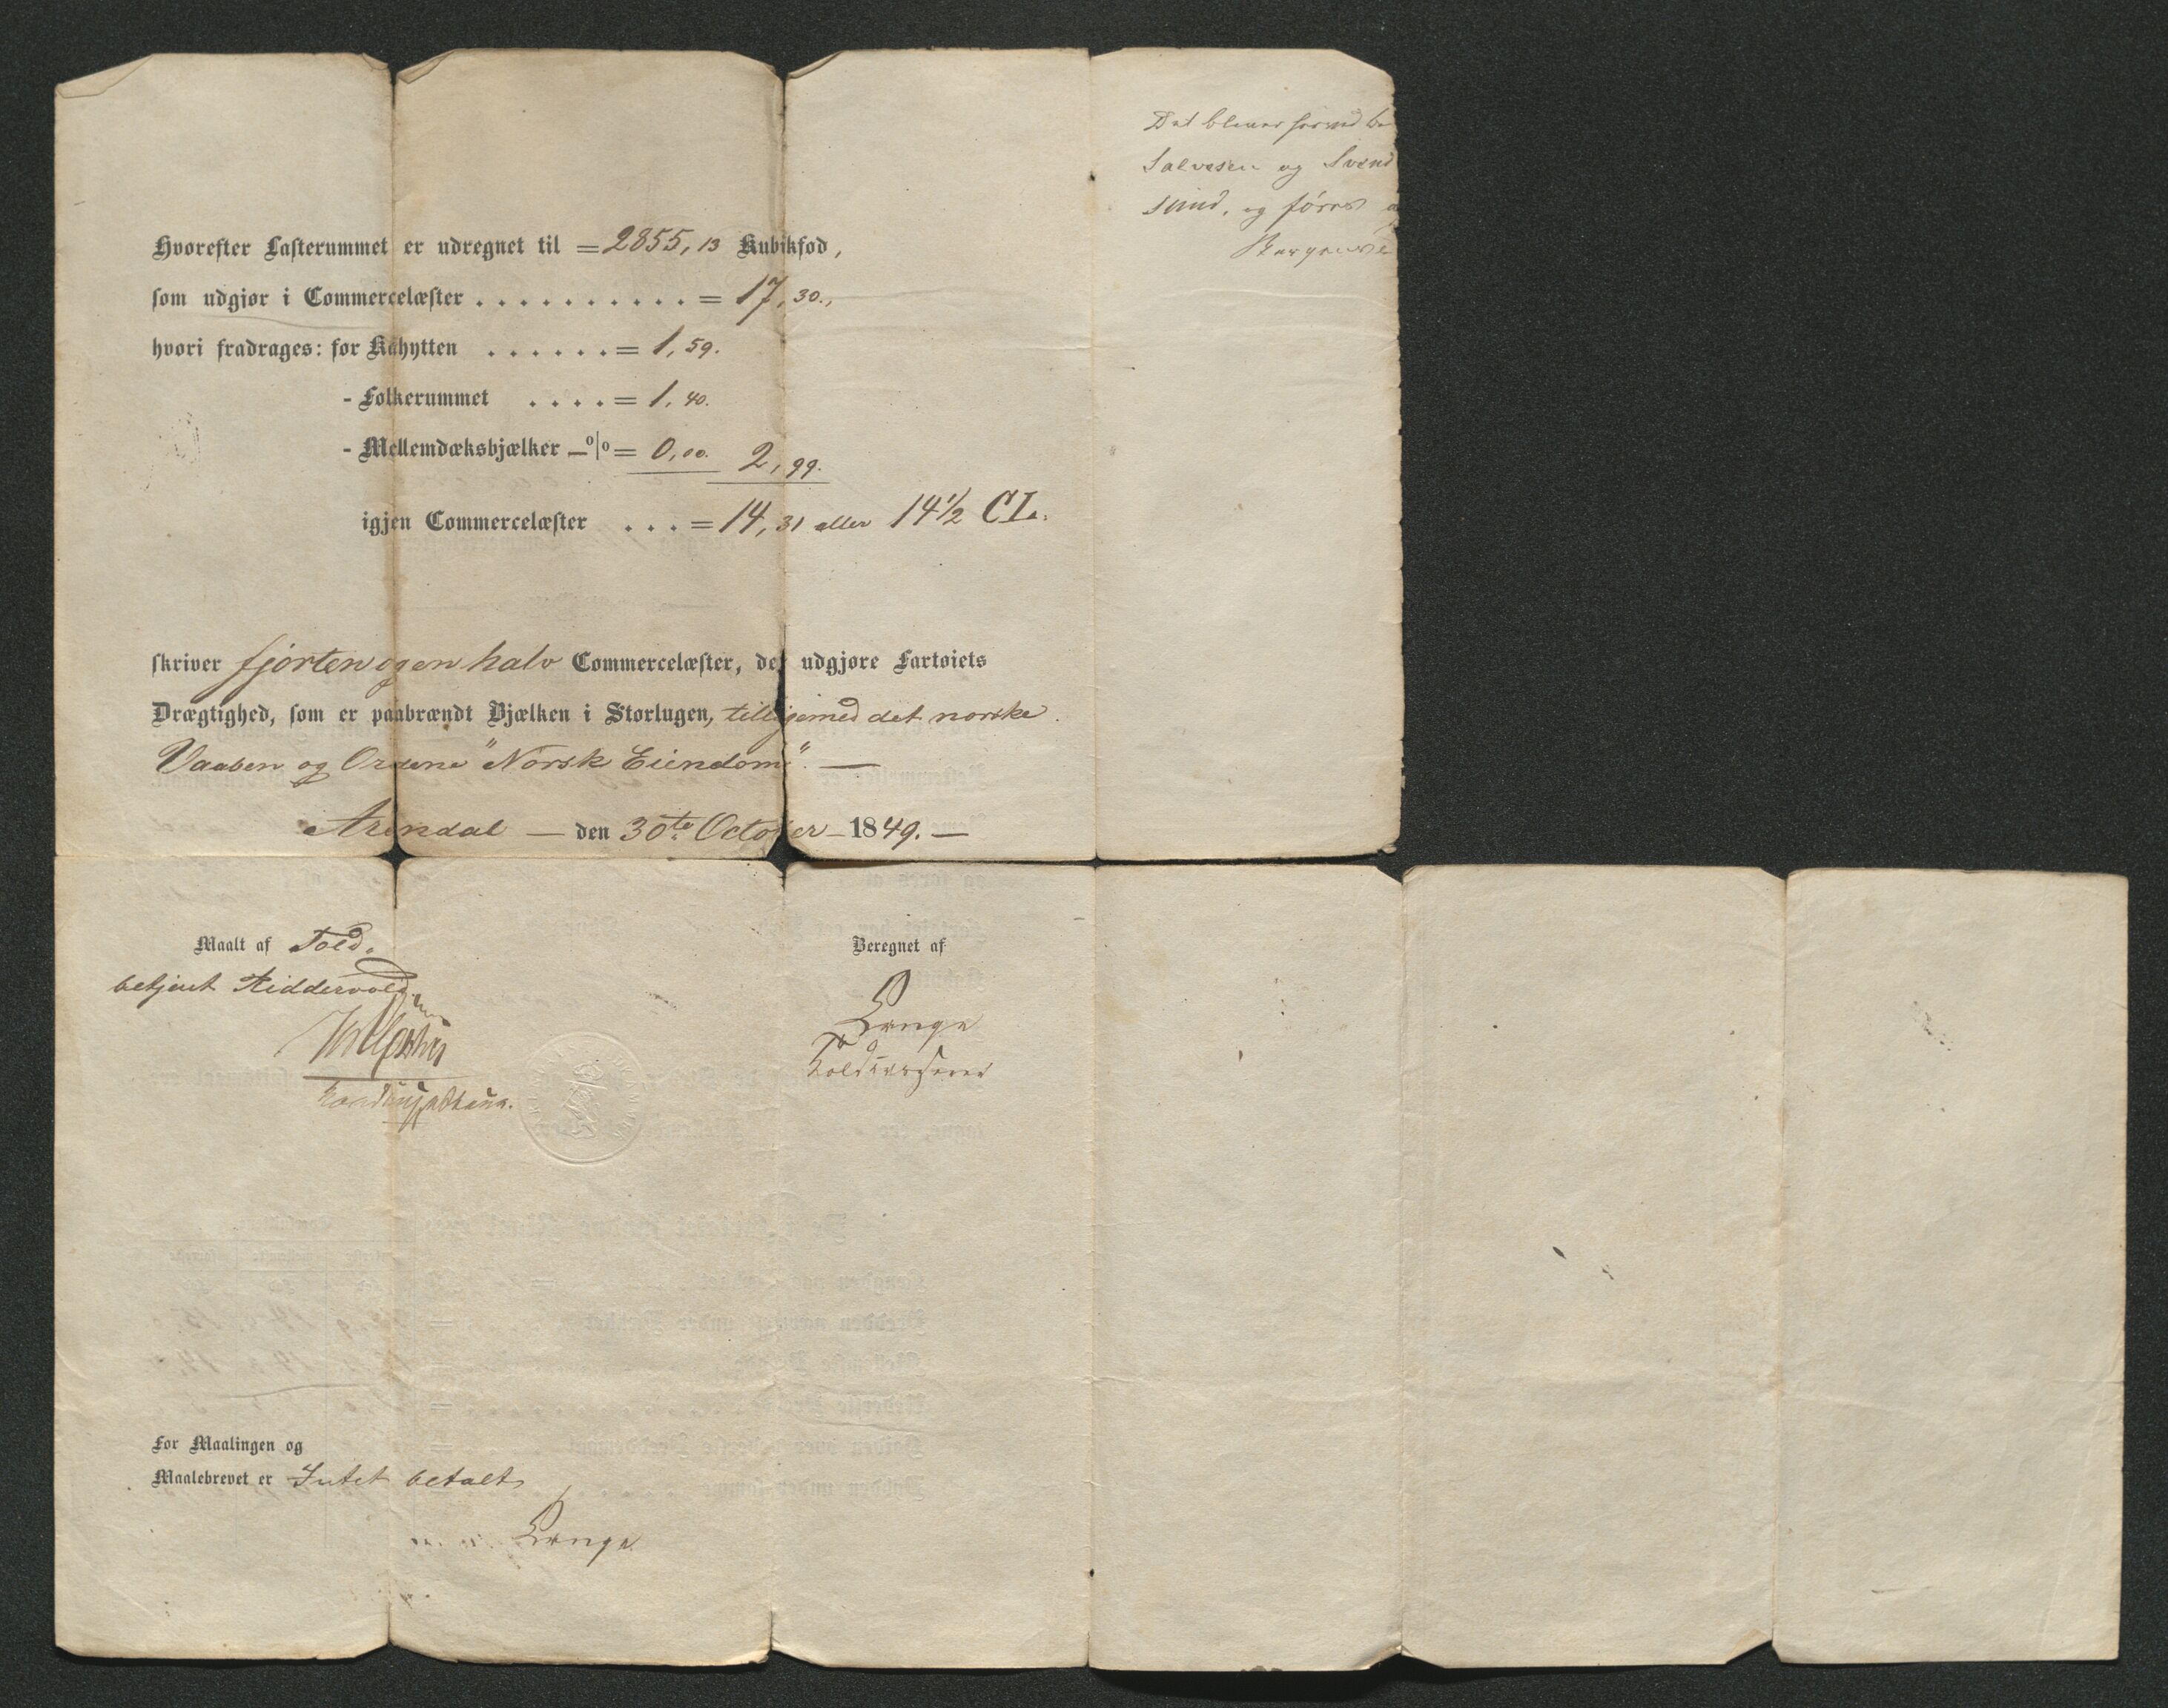 Hvorefter Lasterummet er udregnet til = 2855,13 Kubikfod,
som udgjør i Commercelæster . . . . . . . . . . = 17,30.,
hvori fradrages: for Kahytten . . . . . . = 1,59.
- Folkerummet . . . . = 1,40.
- Mellemdæksbjælker — % = 0,00. 2,99.
igjen Commercelæster . . . = 14,31 eller 14½ CL.
skriver fjorten og en halv Commercelæster, der udgjøre Fartøiets
Drægtighed, som er paabrændt Bjælken i Storlugen, tilligemed det norske
Vaaben og Ordene "Norsk Eiendom". —
Arendal — den 30te October — 1849. —
Maalt af Told-
betjent Riddervold
Beregnet af
Lange
Toldkasserer
For Maalingen og
Maalebrevet er Intet betalt
Lange
Salvesen og Svend
sund, og føres